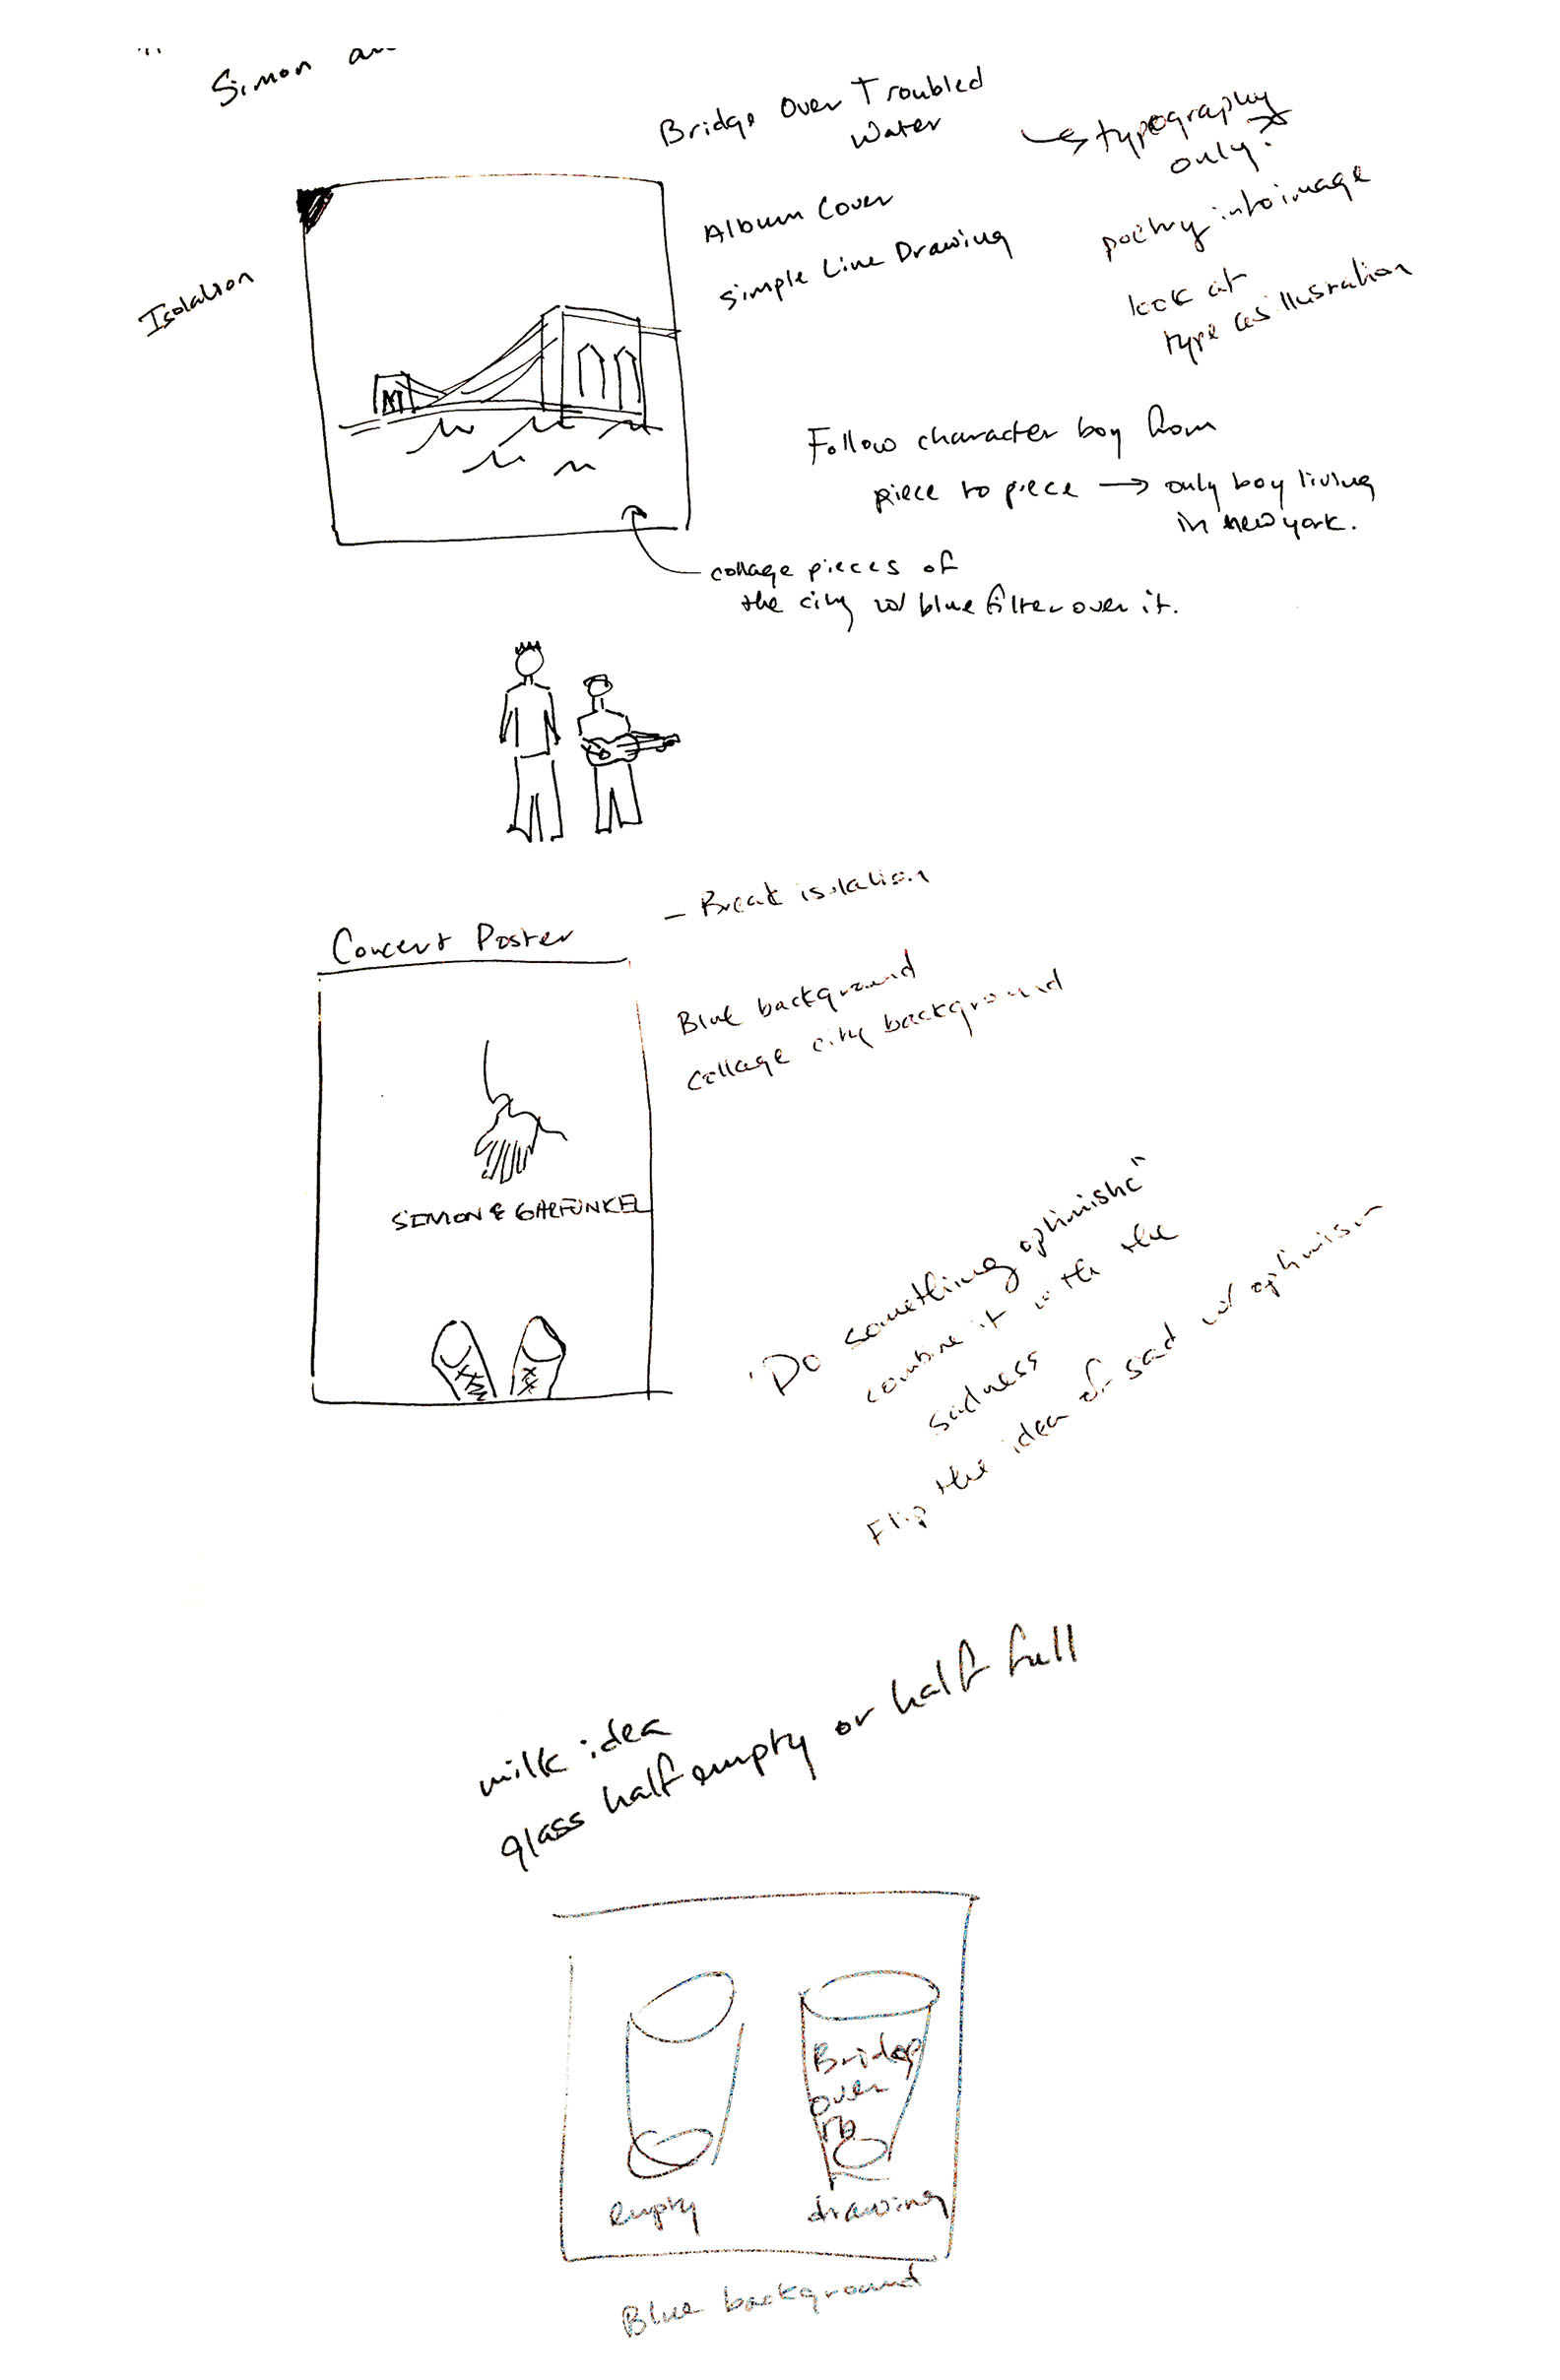 Simon
Bridge Over Troubled
Water
typography
only?
Album Cover
Simple Line Drawing
poetry into image
look at
type as illustration
Isolation
Follow character boy from
piece to piece → only boy living
in new york.
collage pieces of
the city w/ blue filter over it.
- Break isolation
Concert Poster
Blue background
collage city background
SIMON & GARFUNKEL
"Do something optimistic"
combine it with the
sadness
Flip the idea of sad w/ optimism
milk idea
glass half empty or half full
Bridge
over
empty
drawing
Blue background